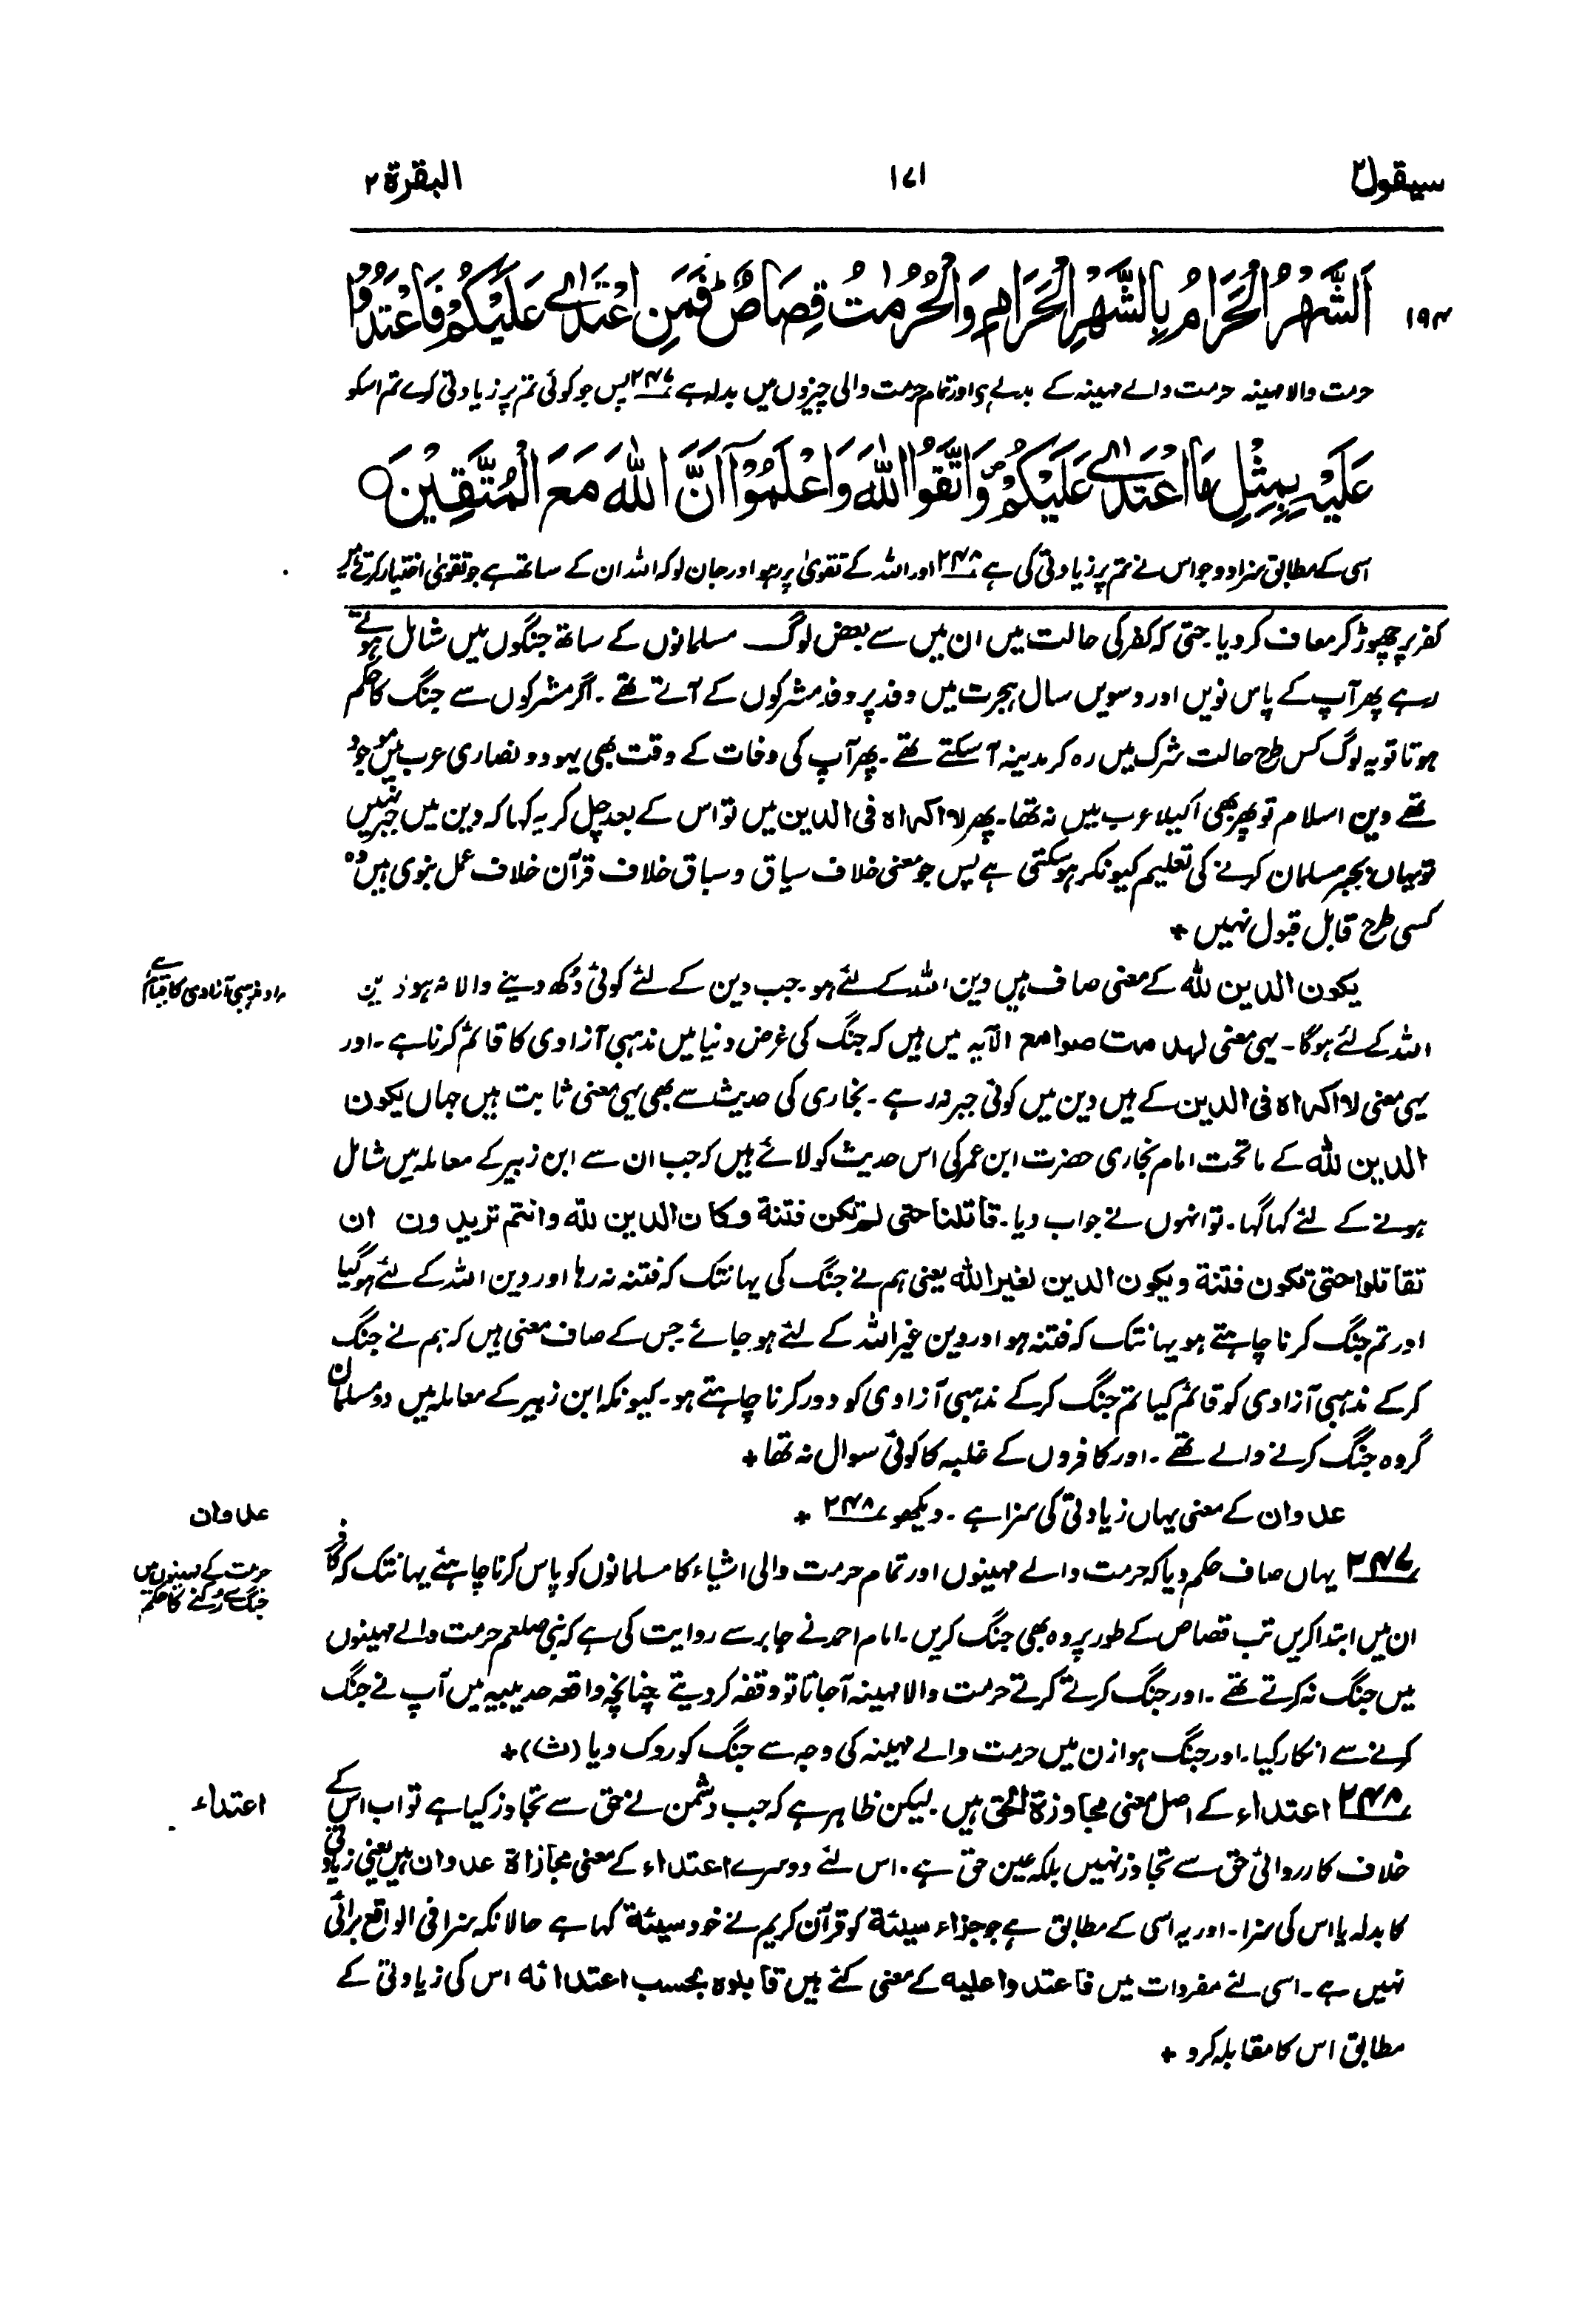 سیقول ۲
۱۷۱
البقرة ۲
۱۹۴
اَلشَّهْرُ الْحَرَامُ بِالشَّهْرِ الْحَرَامِ وَالْحُرُمٰتُ قِصَاصٌ ؕ فَمَنِ اعْتَدٰى عَلَيْكُمْ فَاعْتَدُوْا
حرمت والا مہینہ حرمت والے مہینہ کے بدلے ہی اور تمام حرمت والی چیزوں میں بدلہ ہے ۲۴۷ پس جو کوئی تم پر زیادتی کرے تم اسکو
عَلَيْهِ بِمِثْلِ مَا اعْتَدٰى عَلَيْكُمْ ۖ وَاتَّقُوا اللّٰهَ وَاعْلَمُوْٓا اَنَّ اللّٰهَ مَعَ الْمُتَّقِيْنَ ○
اسی کے مطابق سزا دو جو اس نے تم پر زیادتی کی ہے ۲۴۸ اور اللہ کے تقویٰ پر رہو اور جان لو کہ اللہ ان کے ساتھ ہے جو تقویٰ اختیار کرتے ہیں
کفر پر چھوڑ کر معاف کر دیا۔ حتی کہ کفر کی حالت میں ان میں سے بعض لوگ مسلمانوں کے ساتھ جنگوں میں شامل ہوتے
رہے پھر آپ کے پاس نویں اور دسویں سال ہجرت میں وفد پر وفد مشرکوں کے آتے تھے۔ اگر مشرکوں سے جنگ کا حکم
ہوتا تو یہ لوگ کس طرح حالت شرک میں رہ کر مدینہ آ سکتے تھے۔ پھر آپ کی وفات کے وقت بھی یہود و نصاری عرب میں موجود
تھے دین اسلام تو پھر بھی اکیلا عرب میں نہ تھا۔ پھر لا اکراہ فی الدین میں تو اس کے بعد چل کر یہ کہا کہ دین میں جبر نہیں
تو یہاں بجبر مسلمان کرنے کی تعلیم کیونکر ہو سکتی ہے پس جو معنی خلاف سیاق و سباق خلاف قرآن خلاف عمل نبوی ہیں وہ
کسی طرح قابل قبول نہیں +
یکون الدین للہ کے معنی صاف ہیں دین اللہ کے لئے ہو۔ جب دین کے لئے کوئی دُکھ دینے والا نہ ہو تو دین
سے مراد مذہبی آزادی کا قیام ہے
اللہ کے لئے ہوگا۔ یہی معنی لھدمت صوامع الآیہ میں ہیں کہ جنگ کی غرض دنیا میں مذہبی آزادی کا قائم کرنا ہے۔ اور
یہی معنی لا اکراہ فی الدین کے ہیں دین میں کوئی جبر نہ رہے۔ بخاری کی حدیث سے بھی یہی معنی ثابت ہیں جہاں یکون
الدین للہ کے ماتحت امام بخاری حضرت ابن عمر کی اس حدیث کو لائے ہیں کہ جب ان سے ابن زبیر کے معاملہ میں شامل
ہونے کے لئے کہا گیا۔ تو انہوں نے جواب دیا۔ قاتلنا حتی لم تکن فتنة وکان الدین للہ وانتم تریدون ان
تقاتلوا حتی تکون فتنة ویکون الدین لغیر اللہ یعنی ہم نے جنگ کی یہانتک کہ فتنہ نہ رہا اور دین اللہ کے لئے ہو گیا
اور تم جنگ کرنا چاہتے ہو یہانتک کہ فتنہ ہو اور دین غیر اللہ کے لئے ہو جائے جس کے صاف معنی ہیں کہ ہم نے جنگ
کر کے مذہبی آزادی کو قائم کیا تم جنگ کر کے مذہبی آزادی کو دور کرنا چاہتے ہو۔ کیونکہ ابن زبیر کے معاملہ میں دو مسلمان
گروہ جنگ کرنے والے تھے۔ اور کافروں کے غلبہ کا کوئی سوال نہ تھا +
عدوان کے معنی یہاں زیادتی کی سزا ہے۔ دیکھو ۲۴۸ +
عدوان
۲۴۷ یہاں صاف حکم دیا کہ حرمت والے مہینوں اور تمام حرمت والی اشیاء کا مسلمانوں کو پاس کرنا چاہئے یہانتک کہ کافر
حرمت کے مہینوں میں
جنگ سے رکنے کا حکم
ان میں ابتدا کریں تب قصاص کے طور پر وہ بھی جنگ کریں۔ امام احمد نے جابر سے روایت کی ہے کہ نبی صلعم حرمت والے مہینوں
میں جنگ نہ کرتے تھے۔ اور جنگ کرتے کرتے حرمت والا مہینہ آ جاتا تو وقفہ کر دیتے چنانچہ واقعہ حدیبیہ میں آپ نے جنگ
کرنے سے انکار کیا۔ اور جنگ ہوازن میں حرمت والے مہینہ کی وجہ سے جنگ کو روک دیا (ث) +
۲۴۸ اعتداء کے اصل معنی مجاوزة الحق ہیں۔ لیکن ظاہر ہے کہ جب دشمن نے حق سے تجاوز کیا ہے تو اب اس کے
اعتداء
خلاف کارروائی حق سے تجاوز نہیں بلکہ عین حق ہے۔ اس لئے دوسرے اعتداء کے معنی مجازاة عدوان ہیں یعنی زیادتی
کا بدلہ یا اس کی سزا۔ اور یہ اسی کے مطابق ہے جو جزاء سیئة کو قرآن کریم نے خود سیئة کہا ہے حالانکہ سزا فی الواقع برائی
نہیں ہے۔ اسی لئے مفردات میں فاعتدوا علیہ کے معنی کئے ہیں قابلوہ بحسب اعتدائہ اس کی زیادتی کے
مطابق اس کا مقابلہ کرو +